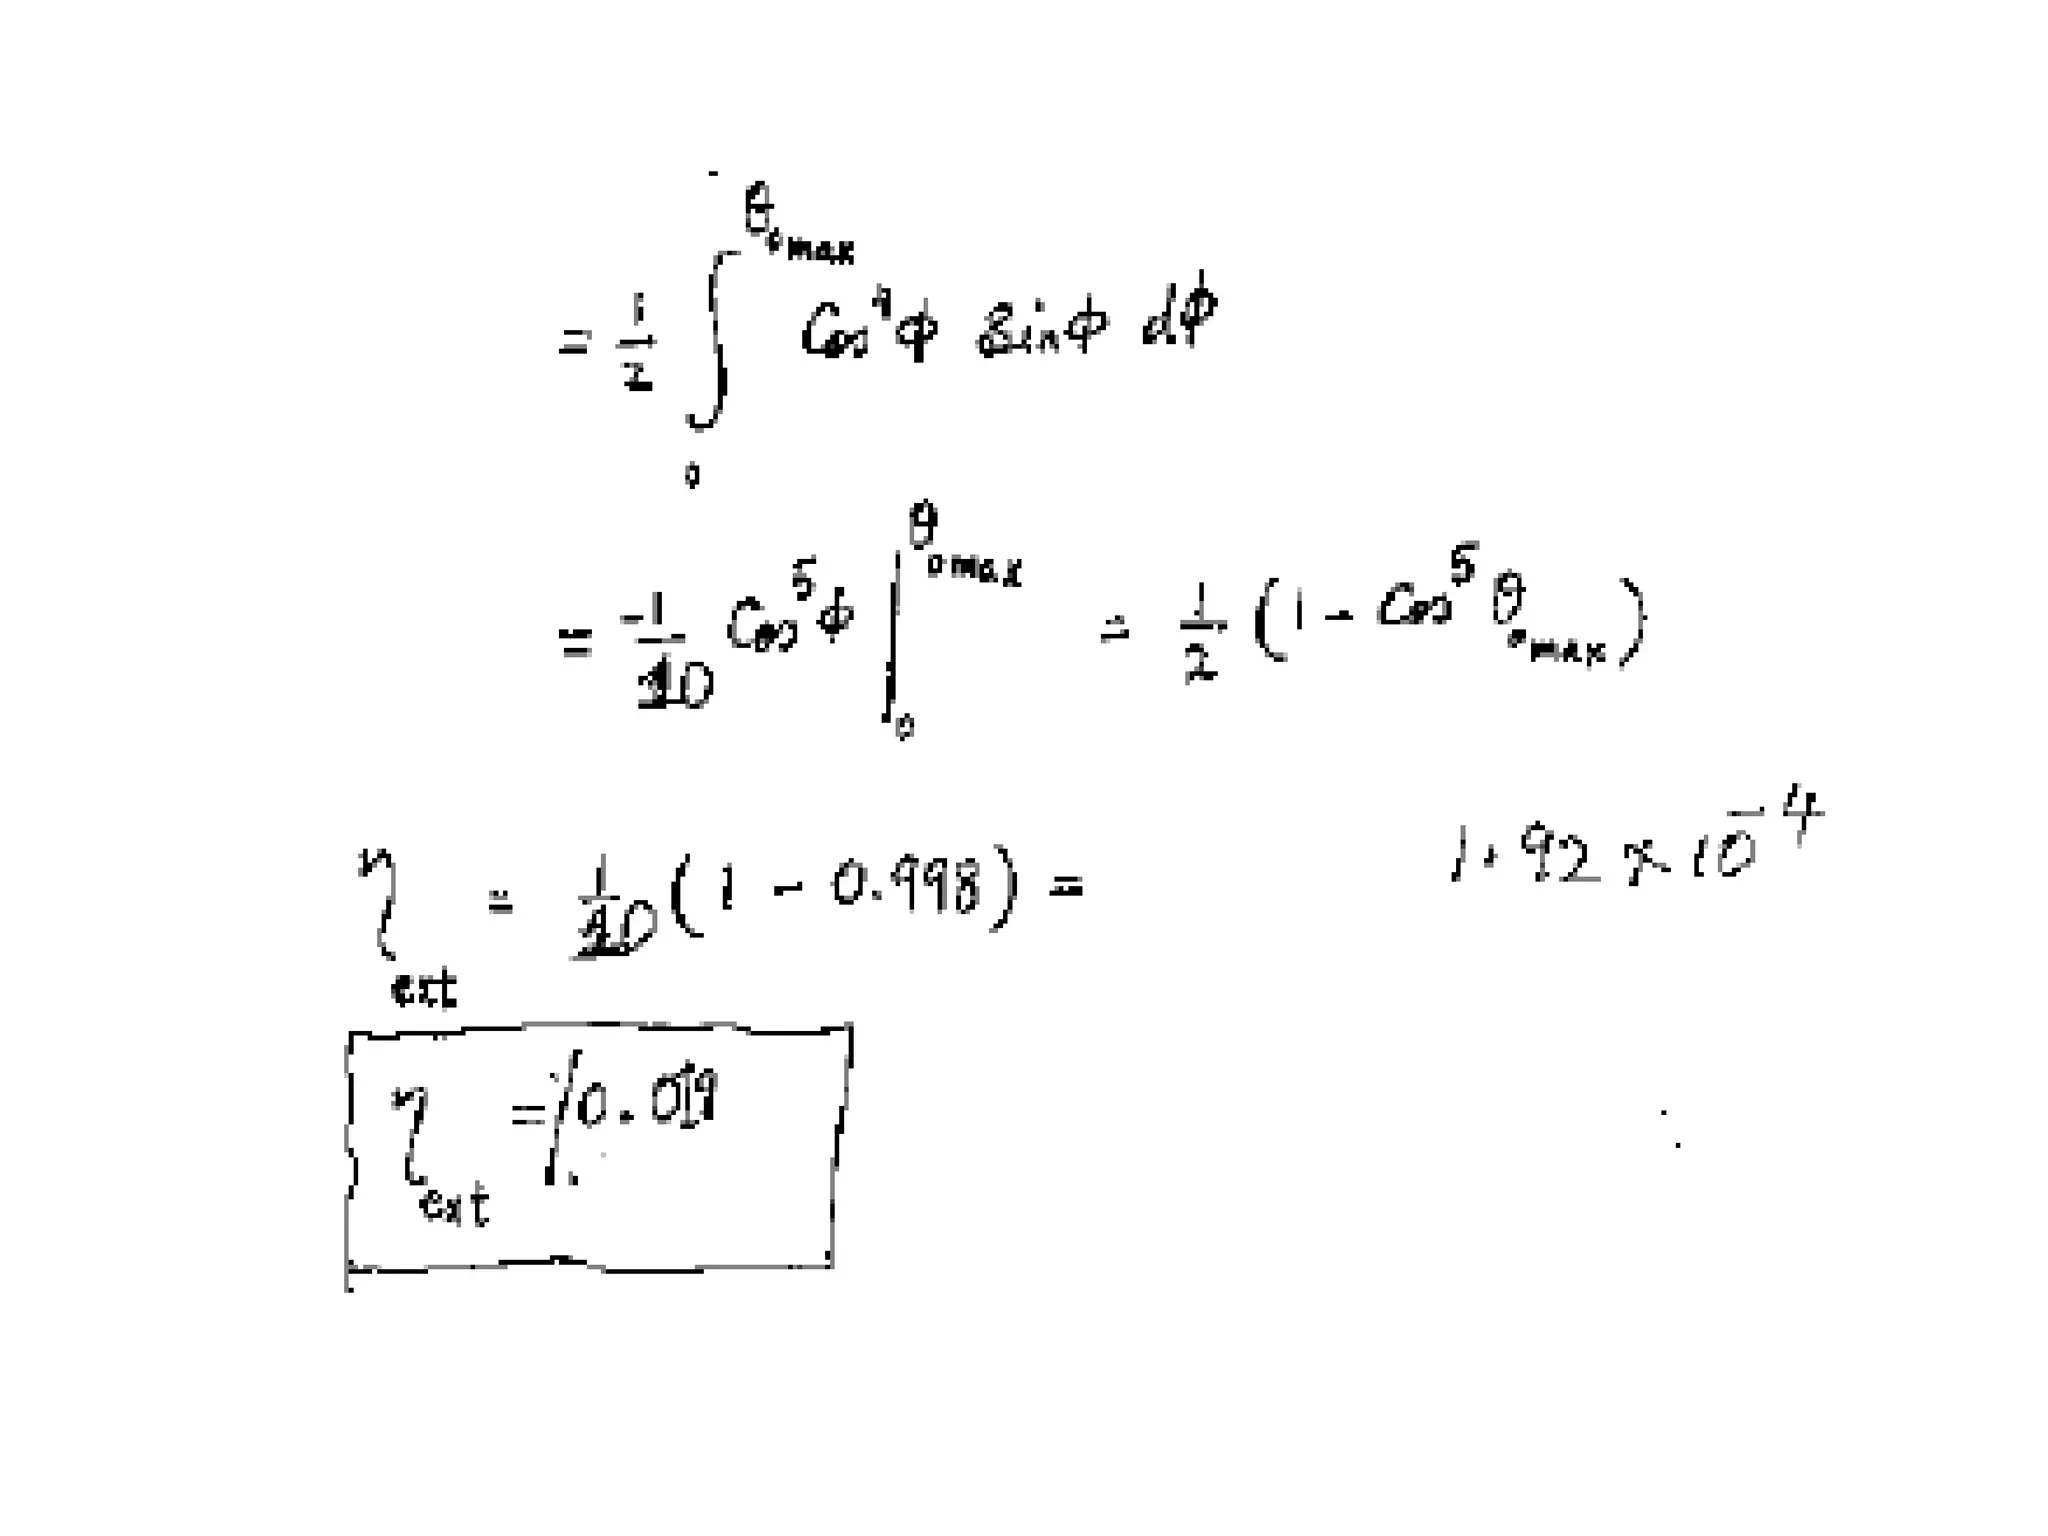 = 1/2 ∫₀^θomax Cos⁴φ sinφ dφ
= -1/10 Cos⁵φ |₀^θomax = 1/2 (1 - Cos⁵θomax)
η ext = 1/10 (1 - 0.998) = 1.92 × 10⁻⁴
η ext = 0.019